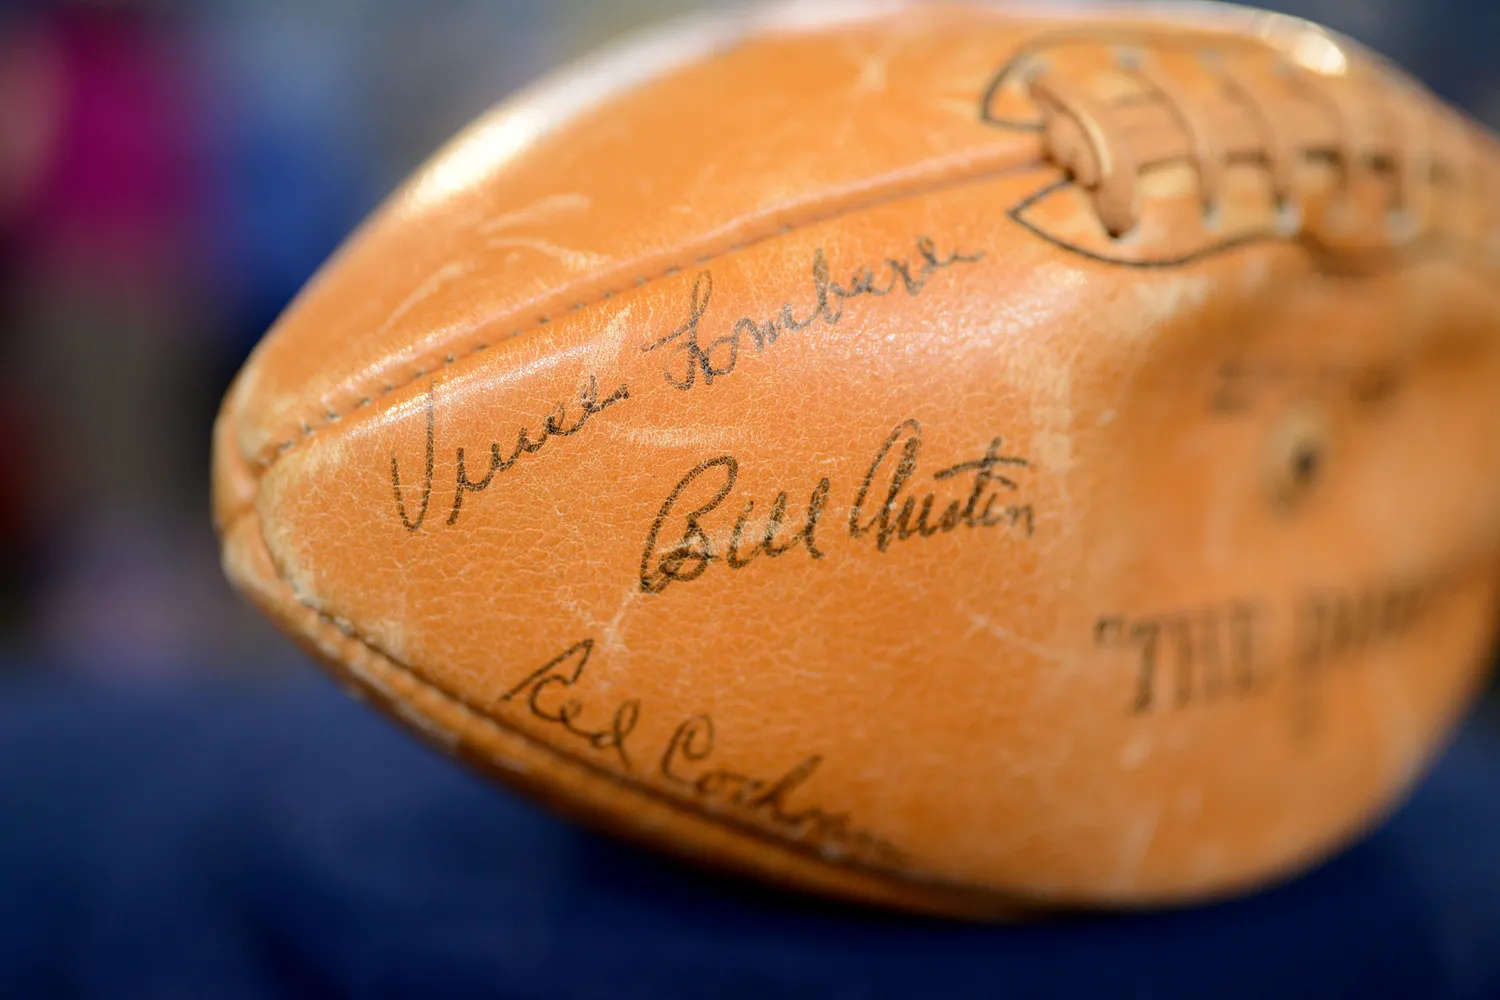 Vince Lombardi
Bill Austin
Red Cochran
"THE